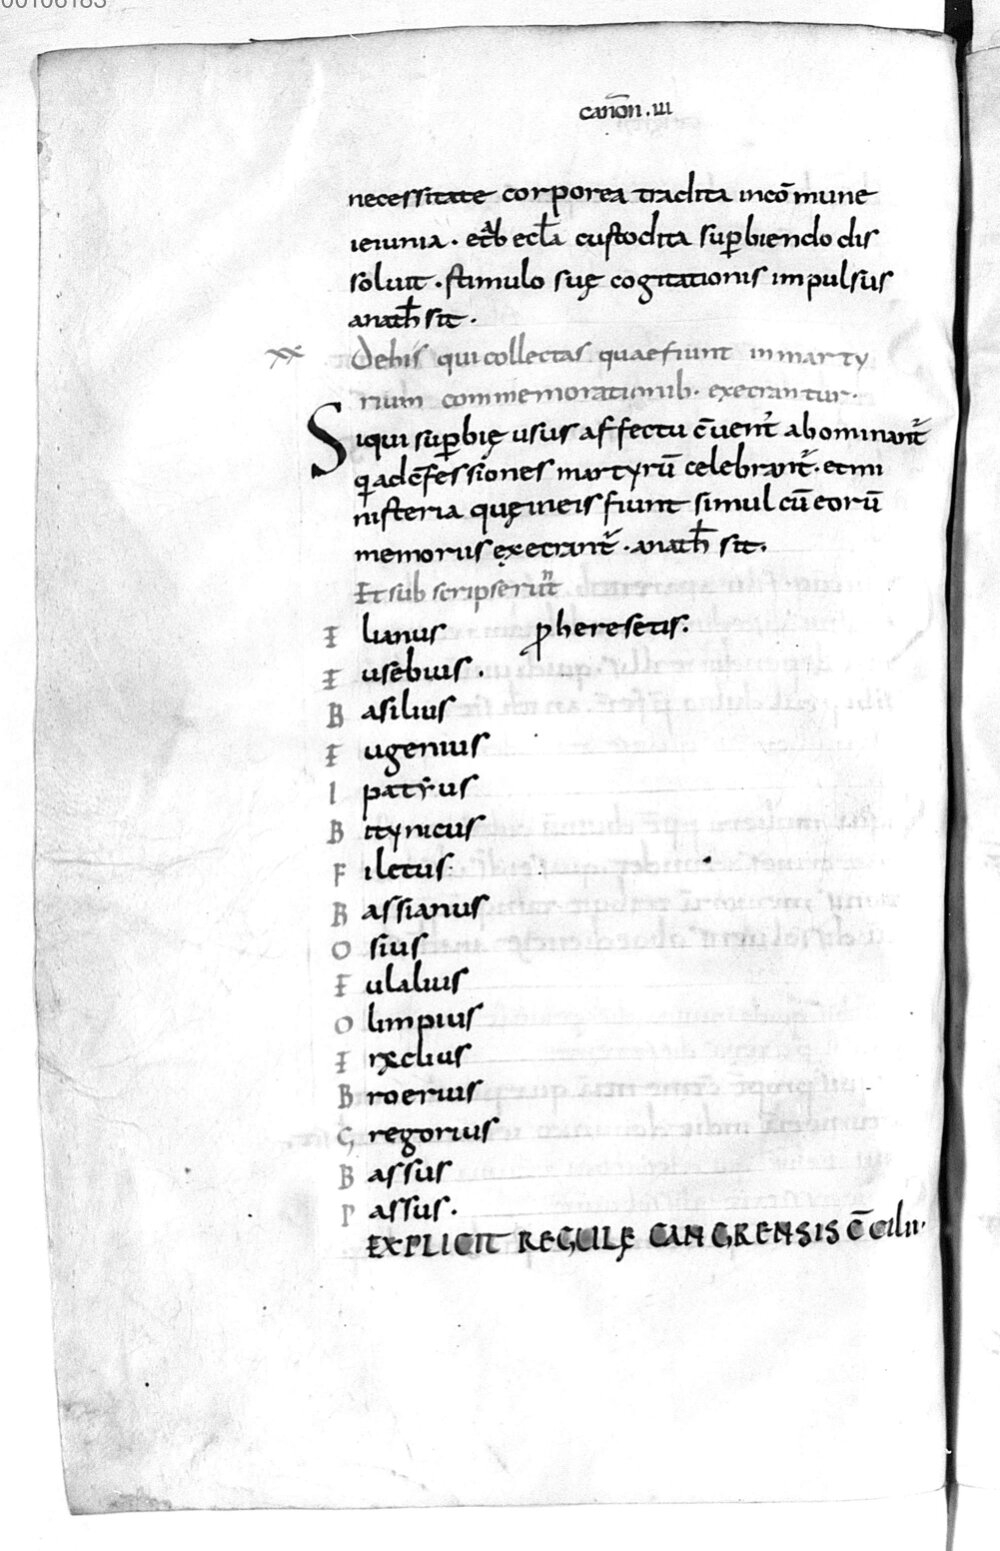 00106183
canōn .III
necessitate corporea tradita incōmune
ieiunia . et ab ecła custodita suꝑbiendo dis
soluit . stimulo suę cogitationis impulsus
anatħ sit .
XX De his qui collectas quae fiunt in marty
rium commemorationib. execrantur.
Siqui suꝑbię usus affectu c̄uent᷑ abominant᷑
q ad c̄fessiones martyrū celebrant᷑ . et mi
nisteria quę in eis fiunt simul cū eorū
memoriis exęcrant᷑ . anatħ sit.
Et sub scripserūt
E lianus ꝓheresetis.
E usebius .
B asilius
E ugenius
I patyus
B itynicus
F iletus
B assianus
O sius
E ulalius
O limpius
E raclius
B roerius
G regorius
B assus
P assus.
EXPLICIT REGULĘ GANGRENSIS C̄CILII.